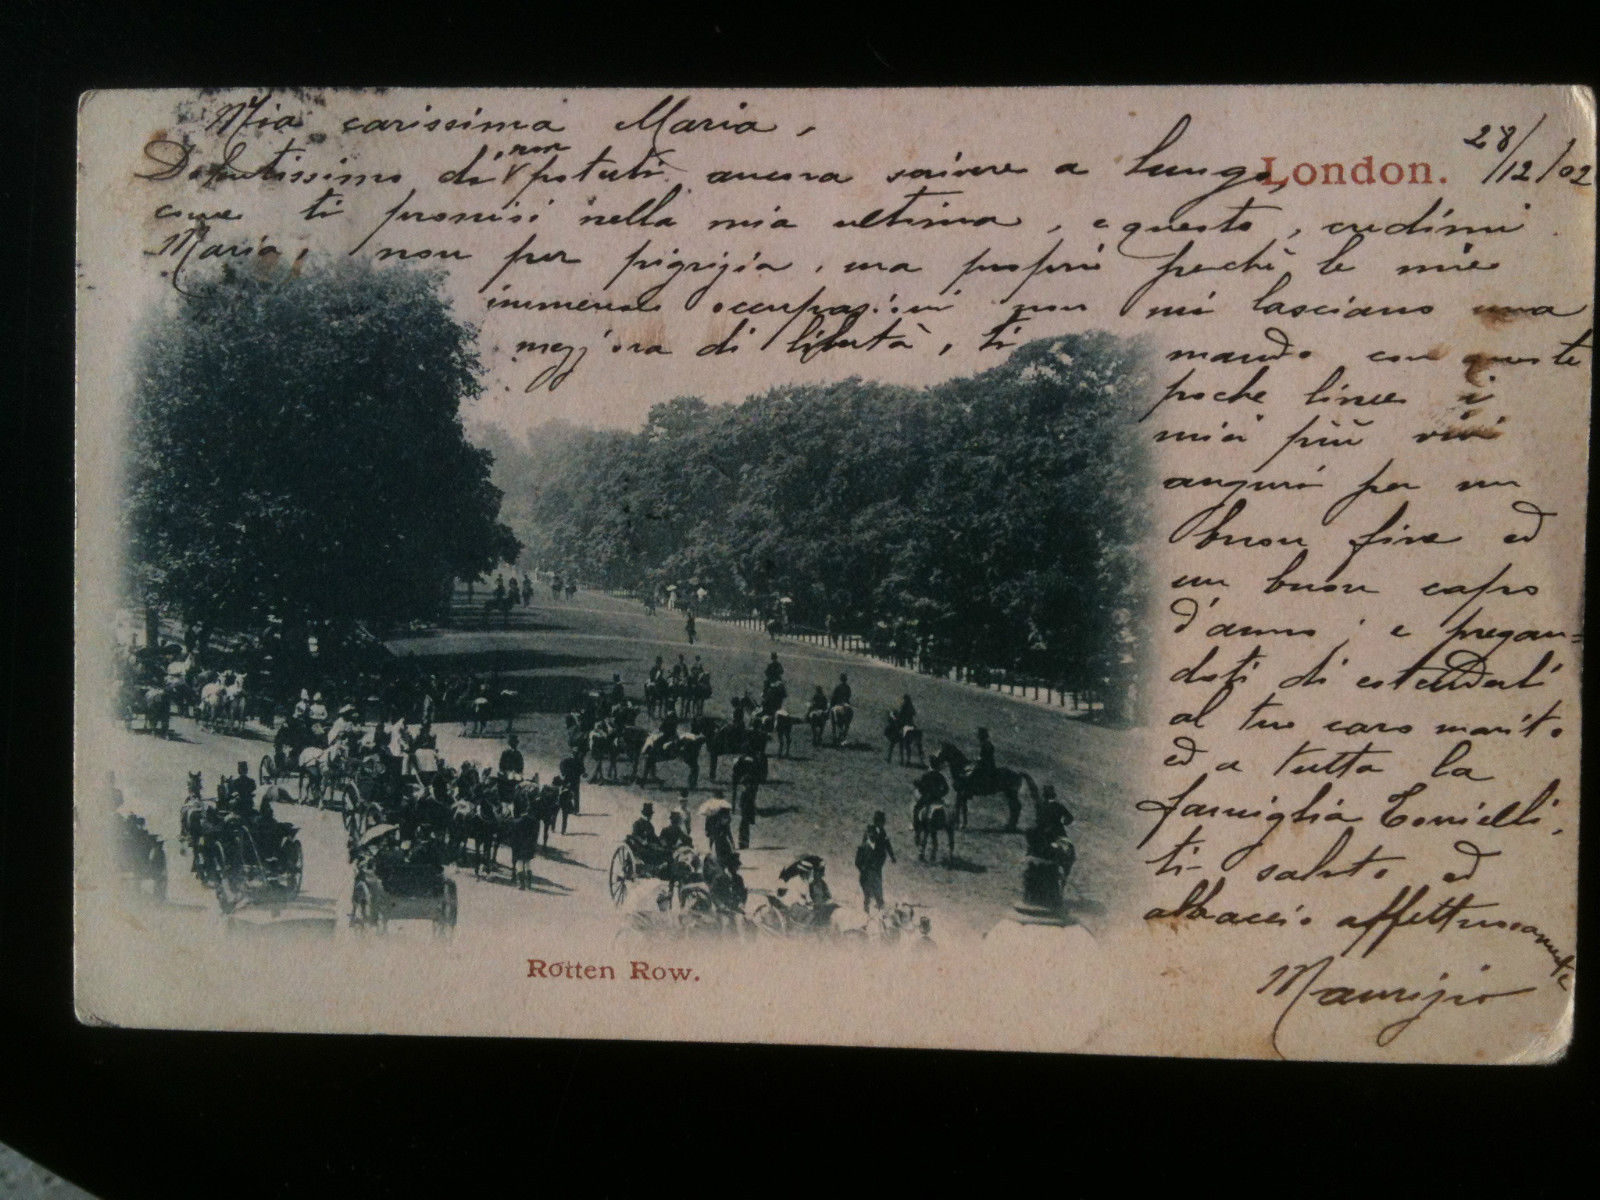 Mia carissima Maria,
London. 28/12/02
di non potuti ancora scrivere a lungo,
come ti promisi nella mia ultima, e questo, credimi
Maria, non per pigrizia, ma proprio perchè le mie
immense occupazioni non mi lasciano una
mezz'ora di libertà, ti
mando con queste
poche linee i
miei più vivi
auguri per un
buon fine ed
un buon capo
d'anno; e pregan=
doti di estenderli
al tuo caro marito
ed a tutta la
famiglia
ti saluto ed
abbaccio affettuosamente
Maurizio
Rotten Row.